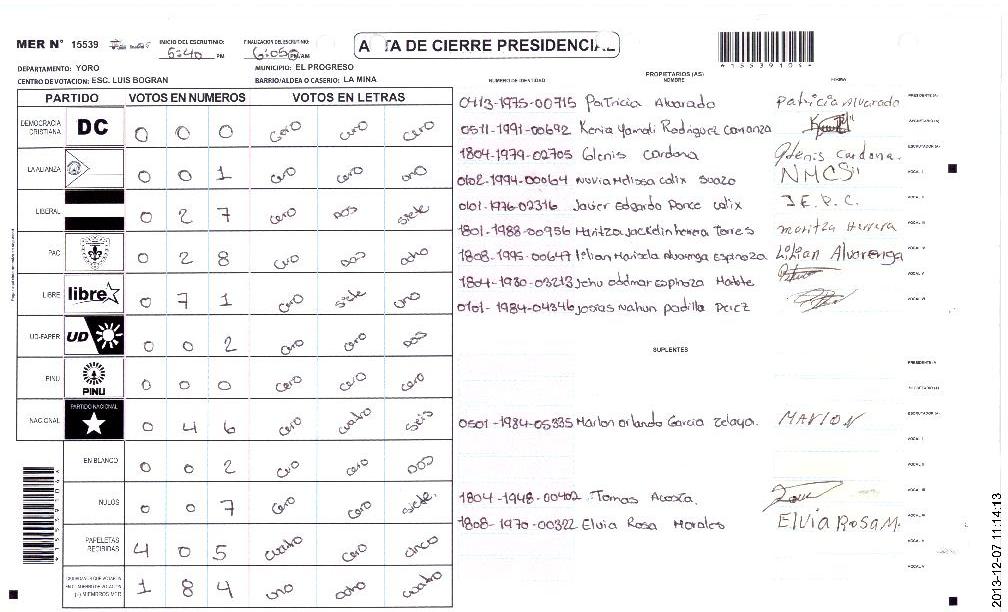 MER N° 15539
INICIO DEL ESCRUTINIO:
5:40 PM
FINALIZACION DEL ESCRUTINIO:
6:05 PM/AM
ACTA DE CIERRE PRESIDENCIAL
DEPARTAMENTO: YORO
MUNICIPIO: EL PROGRESO
CENTRO DE VOTACION: ESC. LUIS BOGRAN
BARRIO/ALDEA O CASERIO: LA MINA
PARTIDO VOTOS EN NUMEROS VOTOS EN LETRAS
DEMOCRACIA CRISTIANA DC 0 0 0 Cero Cero Cero
LA ALIANZA 0 0 1 Cero Cero uno
LIBERAL 0 2 7 Cero Dos Siete
PAC 0 2 8 Cero Dos ocho
LIBRE libre 0 7 1 Cero Siete uno
UD-FAPER UD 0 0 2 Cero Cero Dos
PINU PINU 0 0 0 Cero Cero Cero
NACIONAL PARTIDO NACIONAL 0 4 6 Cero Cuatro Seis
EN BLANCO 0 0 2 Cero Cero Dos
NULOS 0 0 7 Cero Cero Siete.
PAPELETAS RECIBIDAS 4 0 5 Cuatro Cero Cinco
1 8 4 uno ocho cuatro
NUMERO DE IDENTIDAD
PROPIETARIOS (AS)
NOMBRE
FIRMA
0413-1975-00715 Patricia Alvarado Patricia Alvarado
0511-1991-00692 Kenia Yamali Rodriguez Carranza
1804-1979-02705 Glenis Cardona Glenis Cardona.
0102-1994-00064 Nuvia Melissa Calix Suazo NMCS"
0101-1976-02316 Javier Edgardo Ponce Calix J.E.P.C.
1801-1988-00956 Maritza Jackelin herrera Torres maritza Herrera
1808-1995-00647 lilian Marisela Alvarenga espinoza Lilian Alvorenga
1804-1980-03213 Jehu oddmar espinoza
0101-1984-04346 josias nahun padilla Perez
SUPLENTES
0501-1984-05335 Marlon orlando Garcia Zelaya. MARLON
1804-1948-00402 Tomas Acosta.
1808-1970-00322 Elvia Rosa Morales ElviA RoSA M.
2013-12-07 11:14:13